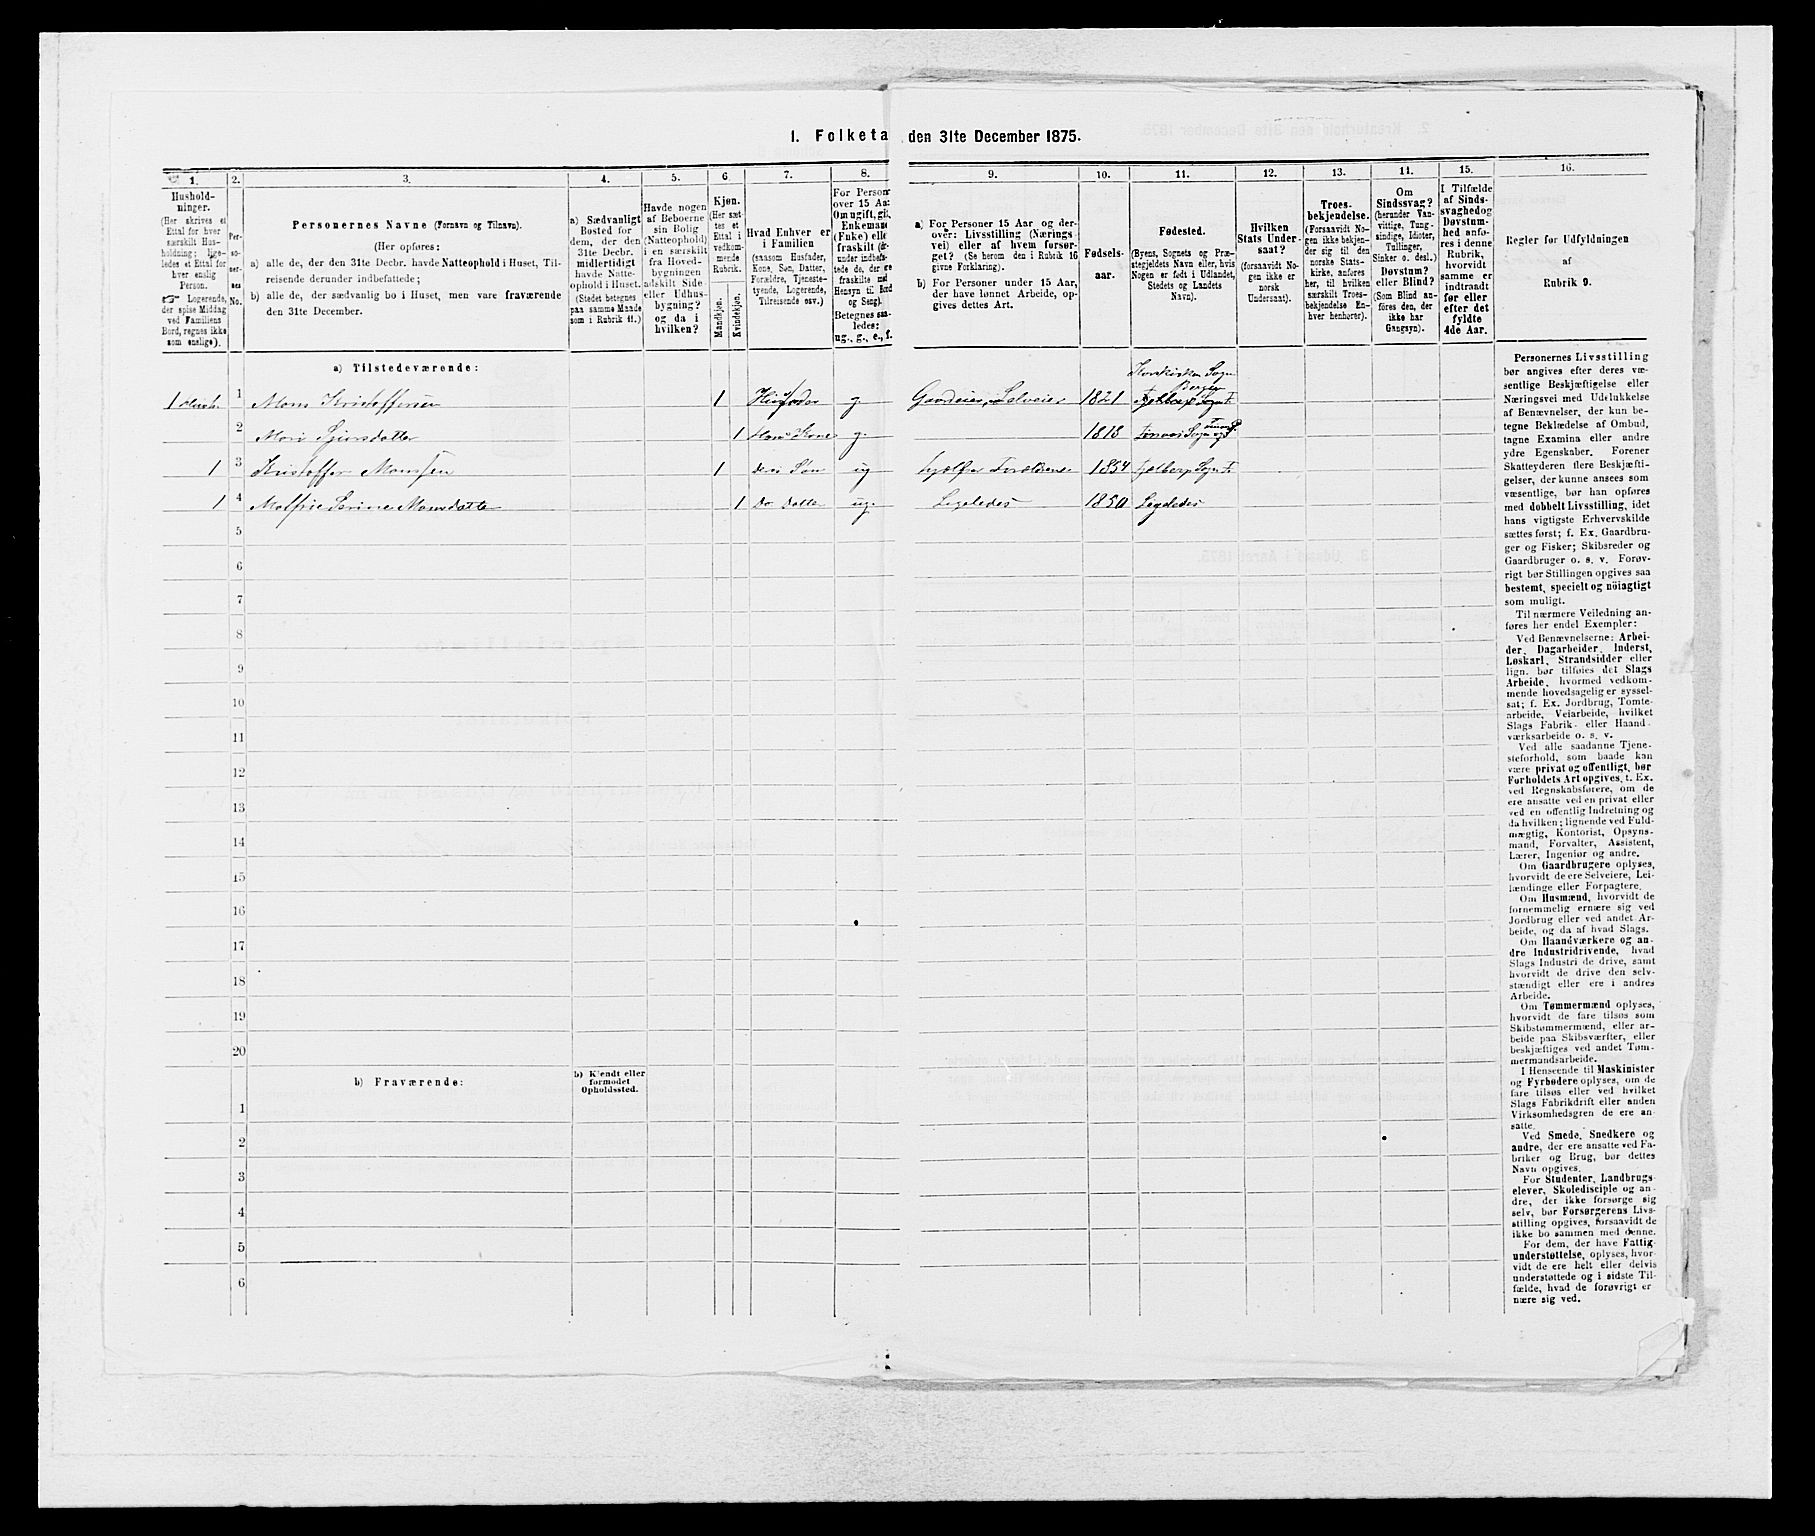 1. Folketa den 31te December 1875.
1. 2. 3. 4. 5. 6. 7. 8. 9. 10. 11. 12. 13. 11. 15. 16.
Hushold-
ninger.
(Her skrives et
Ettal for hver
særskilt Hus-
holdning; lige-
ledes et Ettal for
hver enslig
Person.
☞ Logerende,
der spise Middag
ved Familiens
Bord, regnes ikke
som enslige).
Per-
so-
ner-
nes
No.
Personernes Navne (Fornavn og Tilnavn).
(Her opføres:
a) alle de, der den 31te Decbr. havde Natteophold i Huset, Til-
reisende derunder indbefattede;
b) alle de, der sædvanlig bo i Huset, men vare fraværende
den 31te December.
a) Sædvanligt
Bosted for
dem, der den
31te Decbr.
midlertidigt
havde Natte-
ophold i Huset.
(Stedet betegnes
paa samme Maade
som i Rubrik 11.)
Havde nogen
af Beboerne
sin Bolig
(Natteophold)
i en særskilt
fra Hoved-
bygningen
adskilt Side-
eller Udhus-
bygning?
og da i
hvilken?
Kjøn.
(Her sæt-
tes et
Ettal i
vedkom-
mende
Rubrik.
Mandkjøn.
Kvindekjøn.
Hvad Enhver er
i Familien
(saasom Husfader,
Kone, Søn, Datter,
Forældre, Tjeneste-
tyende, Logerende,
Tilreisende osv.)
For Person
over 15 Aa
Om ugift, gi
Enkeman
(Fuke) elle
fraskilt (
under indbefat-
tede de, der
fraskilte m
Hensyn til
og Seng).
Betegnes saa-
ledes:
ug., g., e., f.
a) For Personer 15 Aar og der-
over: Livsstilling (Nærings-
vei) eller af hvem forsør-
get? (Se herom den i Rubrik 16
givne Forklaring).
b) For Personer under 15 Aar,
der have lønnet Arbeide, op-
gives dettes Art.
Fødsels-
aar.
Fødested.
(Byens, Sognets og Præ-
stegjeldets Navn eller, hvis
Nogen er født i Udlandet,
Stedets og Landets
Navn).
Hvilken
Stats Under-
saat?
(forsaavidt No-
gen ikke er
norsk
Undersaat).
Troes-
bekjendelse.
(Forsaavidt No-
gen ikke bekjen-
der sig til den
norske Stats-
kirke, anføres
her, til hvilken
særskilt Troes-
bekjendelse En-
hver henhører).
Om
Sindssvag?
(herunder Van-
vittige, Tung-
sindige, Idioter,
Tullinger,
Sinker o. desl.)
Døvstum?
eller Blind?
(Som Blind an-
føres den, der
ikke har
Gangsyn).
I Tilfælde
af Sinds-
svaghed og
Døvstum-
hed anfø-
res i denne
Rubrik,
hvorvidt
samme er
indtraadt
før eller
efter det
fyldte
4de Aar.
Regler for Udfyldningen
af
Rubrik 9.
a) Tilstedeværende:
Korskirken Sogn
Bergen
1 1 Mons Kristoffersen 1 Husfader g. Gaardeier, Selveier 1821
2 Mari 1 Hans Kone g. 1818
1 3 Kristoffer Monssen 1 deres Søn ug hjælper Forældrene 1854 Fjelberg Sogn
1 4 Malfrie Serine Monsdatter 1 Do Datter ug. Ligeledes 1850 Ligeledes
5
6
7
8
9
10
11
12
13
14
15
16
17
18
19
20
b) Fraværende:
b) Kjendt eller
formodet
Opholdssted.
1
2
3
4
5
6
Personernes Livsstilling
bør angives efter deres væ-
sentlige Beskjæftigelse eller
Næringsvei med Udelukkelse
af Benævnelser, der kun be-
tegne Beklædelse af Ombud,
tagne Examina eller andre
ydre Egenskaber. Forener
Skatteyderen flere Beskjæfti-
gelser, der kunne ansees som
væsentlige, bør han opføres
med dobbelt Livsstilling, idet
hans vigtigste Erhvervskilde
sættes først; f. Ex. Gaardbru-
ger og Fisker; Skibsreder og
Gaardbruger o. s. v. Forøv-
rigt bør Stillingen opgives saa
bestemt, specielt og nöiagtigt
som muligt.
Til nærmere Veiledning an-
føres her endel Exempler:
Ved Benævnelserne: Arbei-
der, Dagarbeider, Inderst,
Løskarl, Strandsidder eller
lign. bør tilføies det Slags
Arbeide, hvormed vedkom-
mende hovedsagelig er syssel-
sat; f. Ex. Jordbrug, Tomte-
arbeide, Veiarbeide, hvilket
Slags Fabrik- eller Haand-
værksarbeide o. s. v.
Ved alle saadanne Tjene-
steforhold, som baade kan
være privat og offentligt, bør
Forholdets Art opgives, t. Ex.
ved Regnskabsførere, om de
ere ansatte ved en privat eller
ved en offentlig Indretning og
da hvilken; lignende ved Fuld-
mægtig, Kontorist, Opsyns-
mand, Forvalter, Assistent,
Lærer, Ingeniør og andre.
Om Gaardbrugere oplyses,
hvorvidt de ere Selveiere, Lei-
lændinge eller Forpagtere.
Om Husmænd, hvorvidt de
fornemmelig ernære sig ved
Jordbrug eller ved andet Ar-
beide, og da af hvad Slags.
Om Haandværkere og an-
dre Industridrivende, hvad
Slags Industri de drive, samt
hvorvidt de drive den selv-
stændigt eller ere i andres
Arbeide.
Om Tømmermænd oplyses,
hvorvidt de fare tilsøs som
Skibstømmermænd, eller ar-
beide paa Skibsværfter, eller
beskjæftiges ved andet Tøm-
mermandsarbeide.
I Henseende til Maskinister
og Fyrbødere oplyses, om de
fare tilsøs eller ved hvilket
Slags Fabrikdrift eller anden
Virksomhedsgren de ere an-
satte.
Ved Smede, Snedkere og
andre, der ere ansatte ved Fa-
briker og Brug, bør dettes
Navn opgives.
For Studenter, Landbrugs-
elever, Skoledisciple og an-
dre, der ikke forsørge sig
selv, bør Forsørgerens Livs-
stilling opgives, forsaavidt de
ikke bo sammen med denne.
For dem, der have Fattig-
understøttelse, oplyses, hvor-
vidt de ere helt eller delvis
understøttede og i sidste Til-
fælde, hvad de forøvrigt er
nære sig ved.